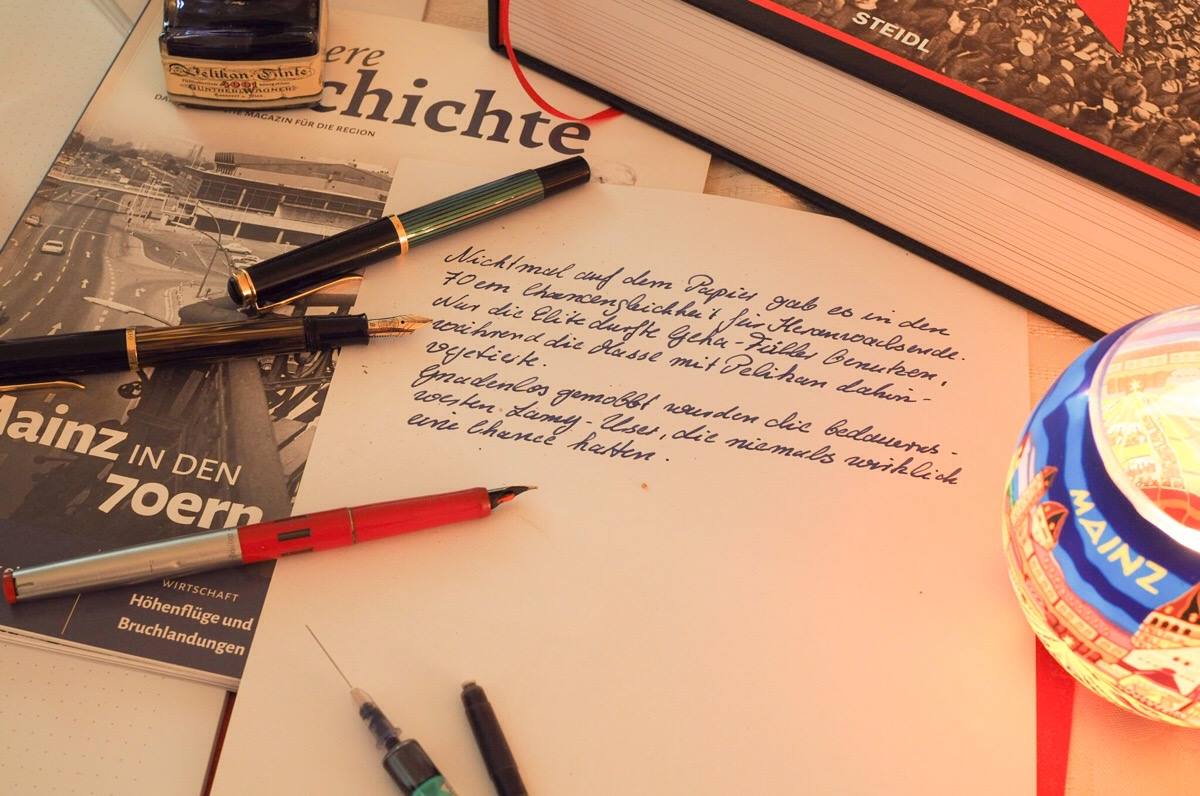 STEIDL
Pelikan-Tinte
4001
GÜNTHER WAGNER
ere
chichte
MAGAZIN FÜR DIE REGION
Nicht mal auf dem Papier gab es in den
70ern Chancengleichheit für Heranwachsende.
Nur die Elite durfte Geha-Füller benutzen,
während die Masse mit Pelikan dahin-
vegetierte.
Gnadenlos gemobbt wurden die bedauerns-
werten Lamy-User, die niemals wirklich
eine Chance hatten.
Mainz IN DEN
70ern
WIRTSCHAFT
Höhenflüge und
Bruchlandungen
MAINZ